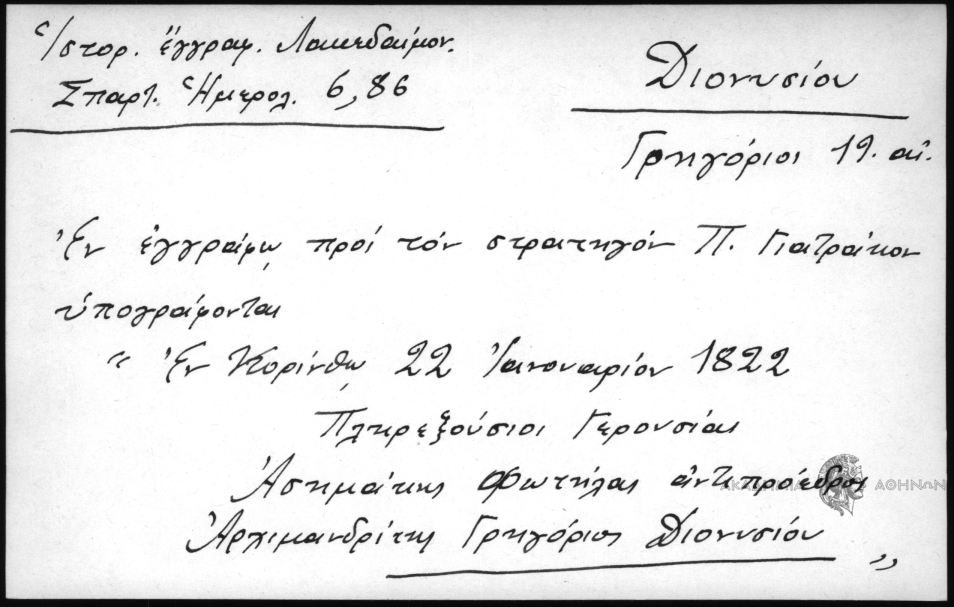 Ἱστορ. ἔγγραφ. Λακεδαίμον.
Σπαρτ. Ἡμερολ. 6,86
Διονυσίου
Γρηγόριος 19. αἰ.
Ἐν ἐγγράφῳ πρός τόν στρατηγόν Π. Γιατράκον
ὑπογράφονται
“ Ἐν Κορίνθῳ 22 Ἰανουαρίου 1822
Πληρεξούσιοι Γερουσίας
Ἀσημάκης Φωτήλας ἀντιπρόεδρος
Ἀρχιμανδρίτης Γρηγόριος Διονυσίου „
ΑΚΑΔΗΜΙΑ ΑΘΗΝΩΝ